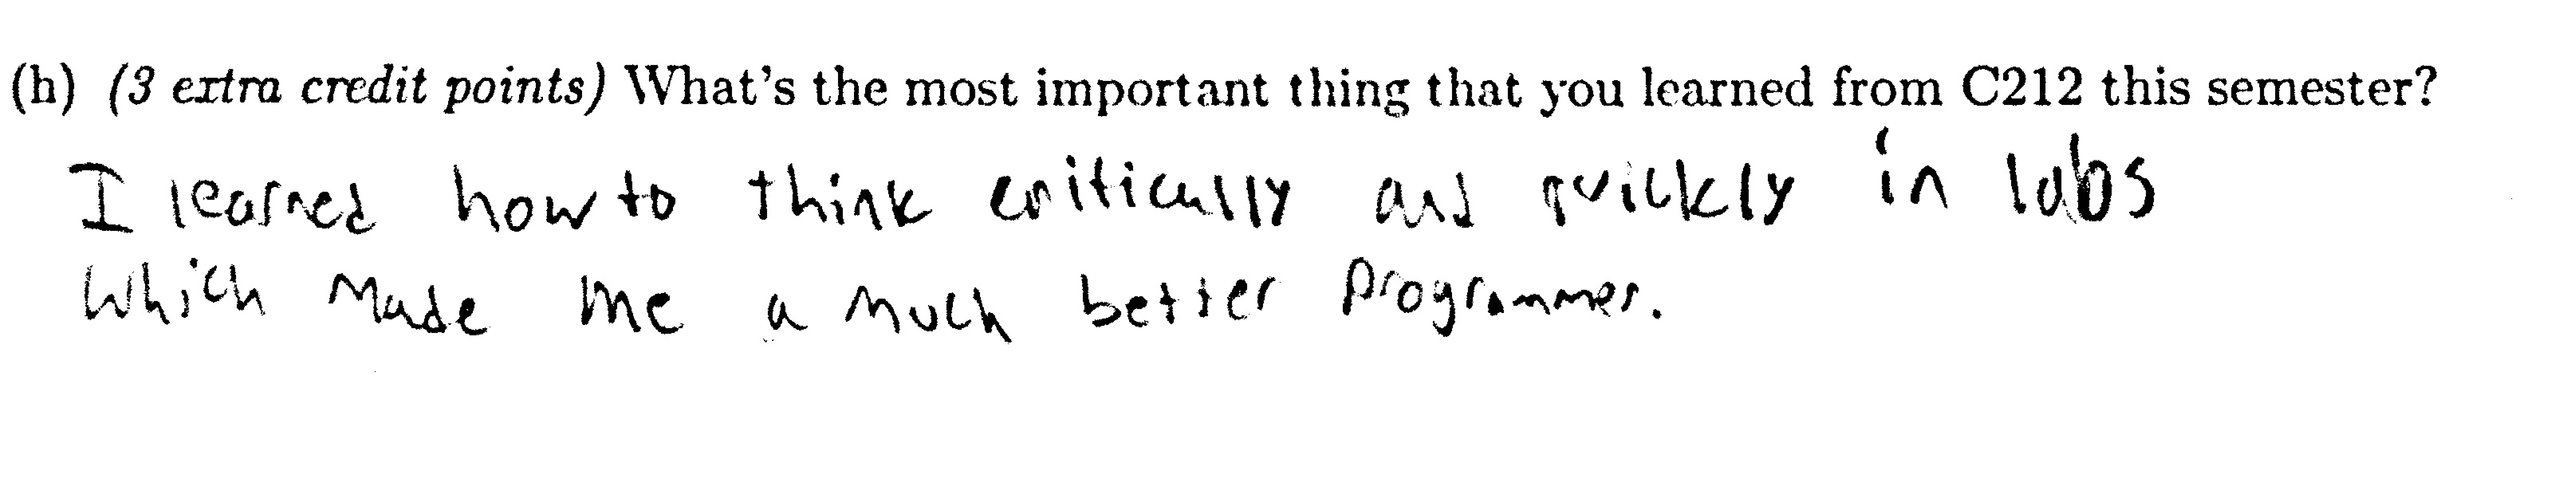 (h) (3 extra credit points) What's the most important thing that you learned from C212 this semester?
I learned how to think critically and quickly in labs
which made me a much better programmer.